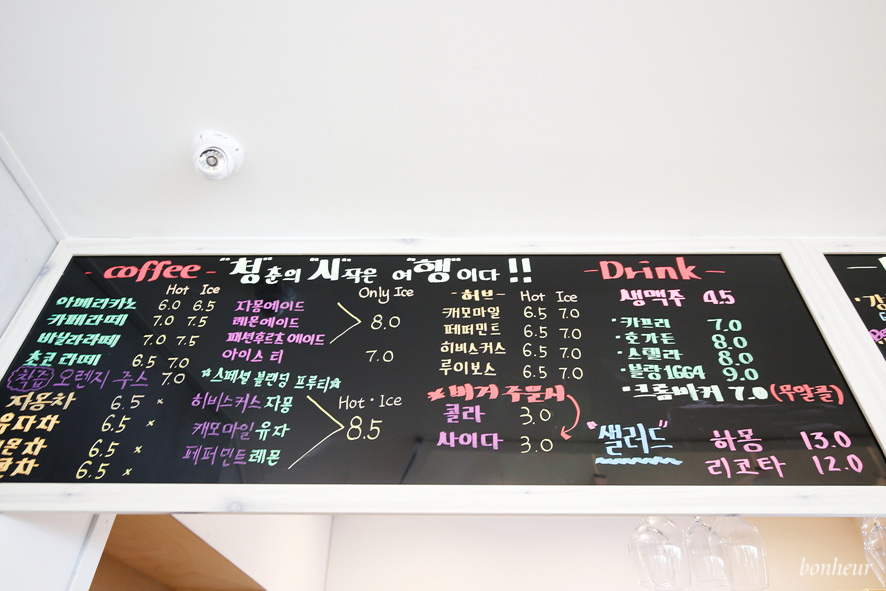 - coffee - "청"춘의 "시"작은 여"행"이다 !!
Hot Ice
아메리카노 6.0 6.5
카페라떼 7.0 7.5
바닐라라떼 7.0 7.5
초코라떼 6.5 7.0
착즙 오렌지 주스 7.0
자몽차 6.5 x
유자차 6.5 x
몬차 6.5 x
차 6.5 x
Only Ice
자몽에이드
레몬에이드
패션후르츠에이드
8.0
아이스티 7.0
☆스페셜 블랜딩 프루티☆
Hot · Ice
히비스커스자몽
캐모마일유자
페퍼민트레몬
8.5
- 허브 - Hot Ice
캐모마일 6.5 7.0
페퍼민트 6.5 7.0
히비스커스 6.5 7.0
루이보스 6.5 7.0
※버거 주문시
콜라 3.0
사이다 3.0
- Drink -
생맥주 4.5
·카프리 7.0
·호가든 8.0
·스텔라 8.0
·블랑1664 9.0
·크롬바커 7.0 (무알콜)
"샐러드"
하몽 13.0
리코타 12.0
bonheur